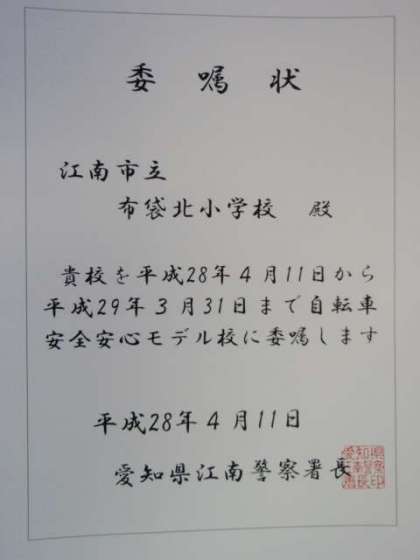 委嘱状
江南市立
布袋北小学校 殿
貴校を平成28年4月11日から
平成29年3月31日まで自転車
安全安心モデル校に委嘱します
平成28年4月11日
愛知県江南警察署長